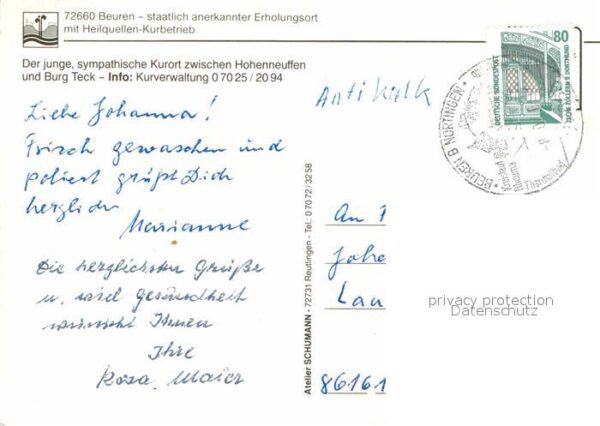 72660 Beuren – staatlich anerkannter Erholungsort
mit Heilquellen-Kurbetrieb
Der junge, sympathische Kurort zwischen Hohenneuffen
und Burg Teck – Info: Kurverwaltung 0 70 25 / 20 94
Antikalk
Liebe Johanna!
Frisch gewaschen und
poliert grüßt Dich
herzlich
Marianne
Die herzlichsten Grüße
u. viel Gesundheit
wünscht Ihnen
Ihre
Rosa Maier
Atelier SCHUMANN · 72731 Reutlingen · Tel.: 0 70 72 / 32 58
80
DEUTSCHE BUNDESPOST
ZECHE ZOLLERN II DORTMUND
BEUREN B NÜRTINGEN
Thermalbad
An
Joha
Lau
86161
privacy protection
Datenschutz